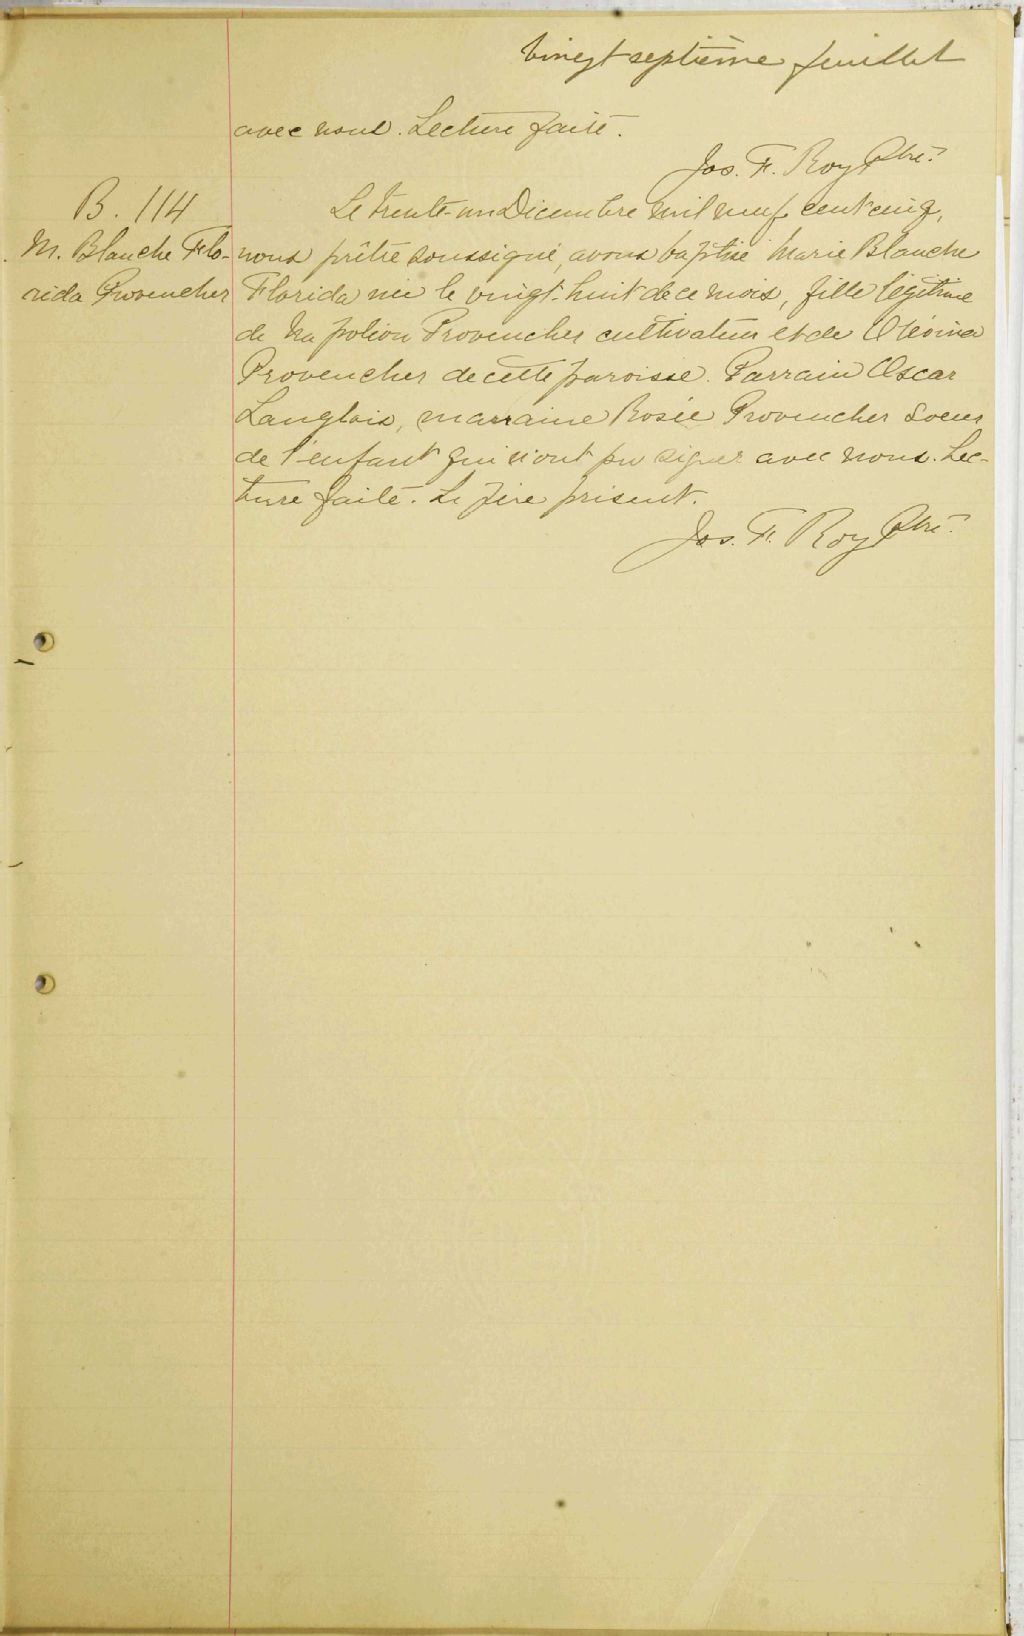 vingt septième feuillet
avec nous. Lecture faite.
Jos. F. Roy Ptre.
B. 114
M. Blanche Flo-
rida Provencher
Le trente-un Décembre mil neuf cent cinq,
nous prêtre soussigné, avons baptisé Marie Blanche
Florida née le vingt-huit de ce mois, fille légitime
de Napoléon Provencher cultivateur et de
Provencher de cette paroisse. Parrain Oscar
Langlois, marraine Rosée Provencher soeur
de l'enfant qui n'ont pu signer avec nous. Lec-
ture faite. Le père présent.
Jos. F. Roy Ptre.